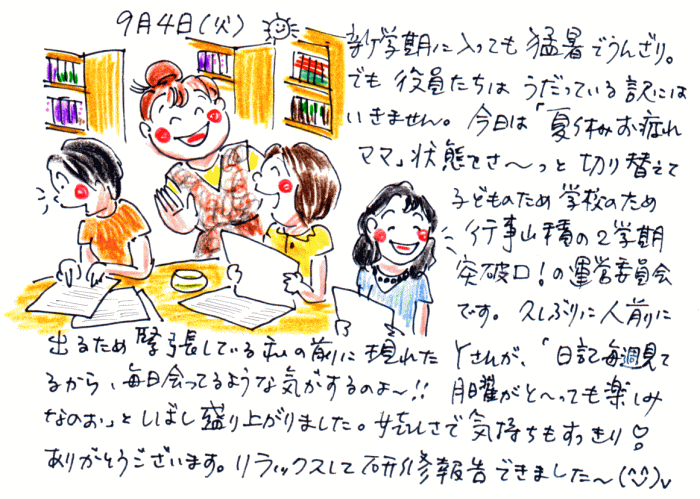 9月4日(火)
新学期に入っても猛暑でうんざり。
でも役員たちはうだっている訳には
いきません。今日は「夏休みお疲れ
ママ」状態でさ〜っと切り替えて
子どものため学校のため
行事山積の2学期
突破口!の運営委員会
です。久しぶりに人前に
出るため緊張している私の前に現れたYさんが、「日記毎週見て
るから、毎日会ってるような気がするのよ〜!!月曜がと〜っても楽しみ
なのぉ」としばし盛り上がりました。嬉しさで気持ちもすっきり♡
ありがとうございます。リラックスして研修報告できました〜(^^)v